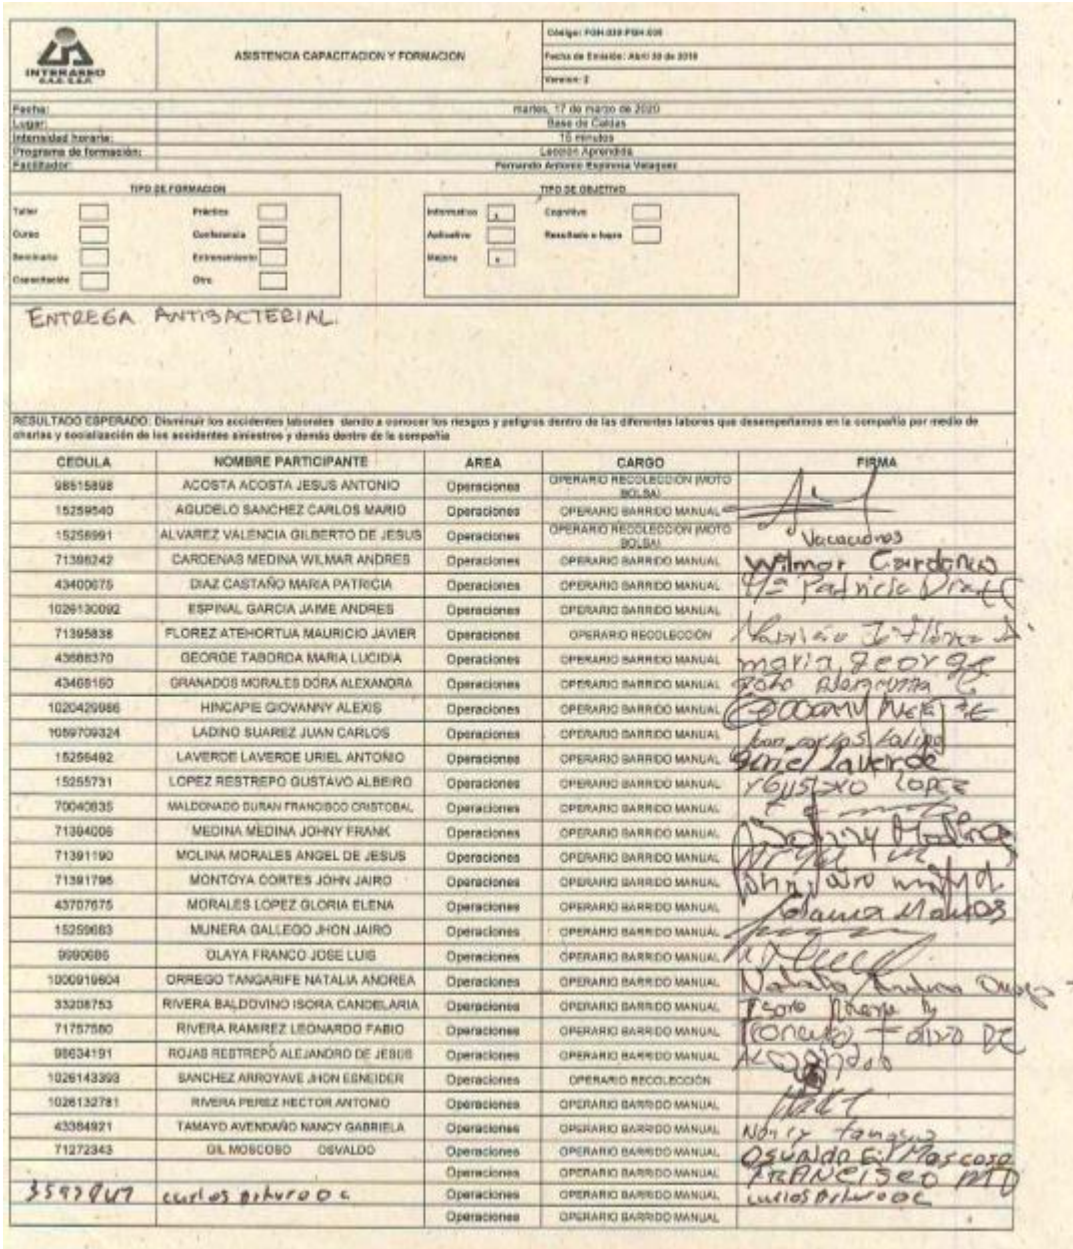 INTERASEO
S.A.S. E.S.P.
ASISTENCIA CAPACITACION Y FORMACION
Código: FGH-039-PGH-005
Fecha de Emisión: Abril 30 de 2018
Version: 2
Fecha: martes, 17 de marzo de 2020
Lugar: Base de Caldas
Intensidad horaria: 15 minutos
Programa de formación: Lección Aprendida
Facilitador: Fernando Antonio Espinosa Velasquez
TIPO DE FORMACION TIPO DE OBJETIVO
Taller Práctica Informativo x Cognitivo
Curso Conferencia Aplicativo Resultado o logro
Seminario Entrenamiento Mejora x
Capacitación Otro
ENTREGA ANTIBACTERIAL.
RESULTADO ESPERADO: Disminuir los accidentes laborales dando a conocer los riesgos y peligros dentro de las diferentes labores que desempeñamos en la compañia por medio de
charlas y socialización de los accidentes siniestros y demás dentro de la compañia
CEDULA NOMBRE PARTICIPANTE AREA CARGO FIRMA
98515898 ACOSTA ACOSTA JESUS ANTONIO Operaciones OPERARIO RECOLECCIÓN (MOTO BOLSA)
15259540 AGUDELO SANCHEZ CARLOS MARIO Operaciones OPERARIO BARRIDO MANUAL
15256991 ALVAREZ VALENCIA GILBERTO DE JESUS Operaciones OPERARIO RECOLECCIÓN (MOTO BOLSA) Vacaciones
71398242 CARDENAS MEDINA WILMAR ANDRES Operaciones OPERARIO BARRIDO MANUAL Wilmar Cardenas
43400675 DIAZ CASTAÑO MARIA PATRICIA Operaciones OPERARIO BARRIDO MANUAL Mª Patricia Diaz C
1026130092 ESPINAL GARCIA JAIME ANDRES Operaciones OPERARIO BARRIDO MANUAL
71395838 FLOREZ ATEHORTUA MAURICIO JAVIER Operaciones OPERARIO RECOLECCIÓN Mauricio J Flórez A.
43688370 GEORGE TABORDA MARIA LUCIDIA Operaciones OPERARIO BARRIDO MANUAL maria george
43468160 GRANADOS MORALES DORA ALEXANDRA Operaciones OPERARIO BARRIDO MANUAL
1020429986 HINCAPIE GIOVANNY ALEXIS Operaciones OPERARIO BARRIDO MANUAL
1059709324 LADINO SUAREZ JUAN CARLOS Operaciones OPERARIO BARRIDO MANUAL Juan carlos Ladino
15256492 LAVERDE LAVERDE URIEL ANTONIO Operaciones OPERARIO BARRIDO MANUAL Uriel Laverde
15255731 LOPEZ RESTREPO GUSTAVO ALBEIRO Operaciones OPERARIO BARRIDO MANUAL Gustavo Lopez
70040835 MALDONADO DURAN FRANCISCO CRISTOBAL Operaciones OPERARIO BARRIDO MANUAL
71394006 MEDINA MEDINA JOHNY FRANK Operaciones OPERARIO BARRIDO MANUAL Johnny Medina
71391190 MOLINA MORALES ANGEL DE JESUS Operaciones OPERARIO BARRIDO MANUAL
71391796 MONTOYA CORTES JOHN JAIRO Operaciones OPERARIO BARRIDO MANUAL
43707675 MORALES LOPEZ GLORIA ELENA Operaciones OPERARIO BARRIDO MANUAL
15259683 MUNERA GALLEGO JHON JAIRO Operaciones OPERARIO BARRIDO MANUAL
9990686 OLAYA FRANCO JOSE LUIS Operaciones OPERARIO BARRIDO MANUAL
1000919604 ORREGO TANGARIFE NATALIA ANDREA Operaciones OPERARIO BARRIDO MANUAL Natalia Andrea
33208753 RIVERA BALDOVINO ISORA CANDELARIA Operaciones OPERARIO BARRIDO MANUAL
71757580 RIVERA RAMIREZ LEONARDO FABIO Operaciones OPERARIO BARRIDO MANUAL
98634191 ROJAS RESTREPO ALEJANDRO DE JESUS Operaciones OPERARIO BARRIDO MANUAL
1026143393 SANCHEZ ARROYAVE JHON ESNEIDER Operaciones OPERARIO RECOLECCIÓN
1026132781 RIVERA PEREZ HECTOR ANTONIO Operaciones OPERARIO BARRIDO MANUAL
43364921 TAMAYO AVENDAÑO NANCY GABRIELA Operaciones OPERARIO BARRIDO MANUAL Nancy tamayo
71272343 GIL MOSCOSO OSVALDO Operaciones OPERARIO BARRIDO MANUAL Osvaldo Gil Moscoso
Operaciones OPERARIO BARRIDO MANUAL FRANCISCO MD
carlos Arturo o c Operaciones OPERARIO BARRIDO MANUAL carlos Arturo o c
Operaciones OPERARIO BARRIDO MANUAL